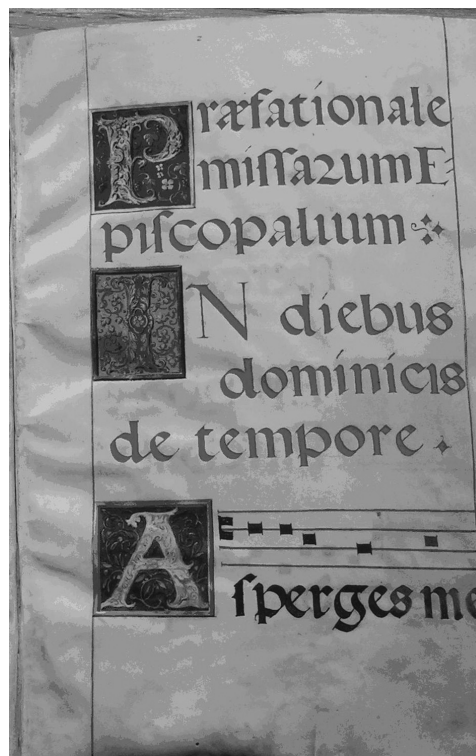 Præfationale
missarum E-
piscopalium
IN diebus
dominicis
de tempore.
Asperges me